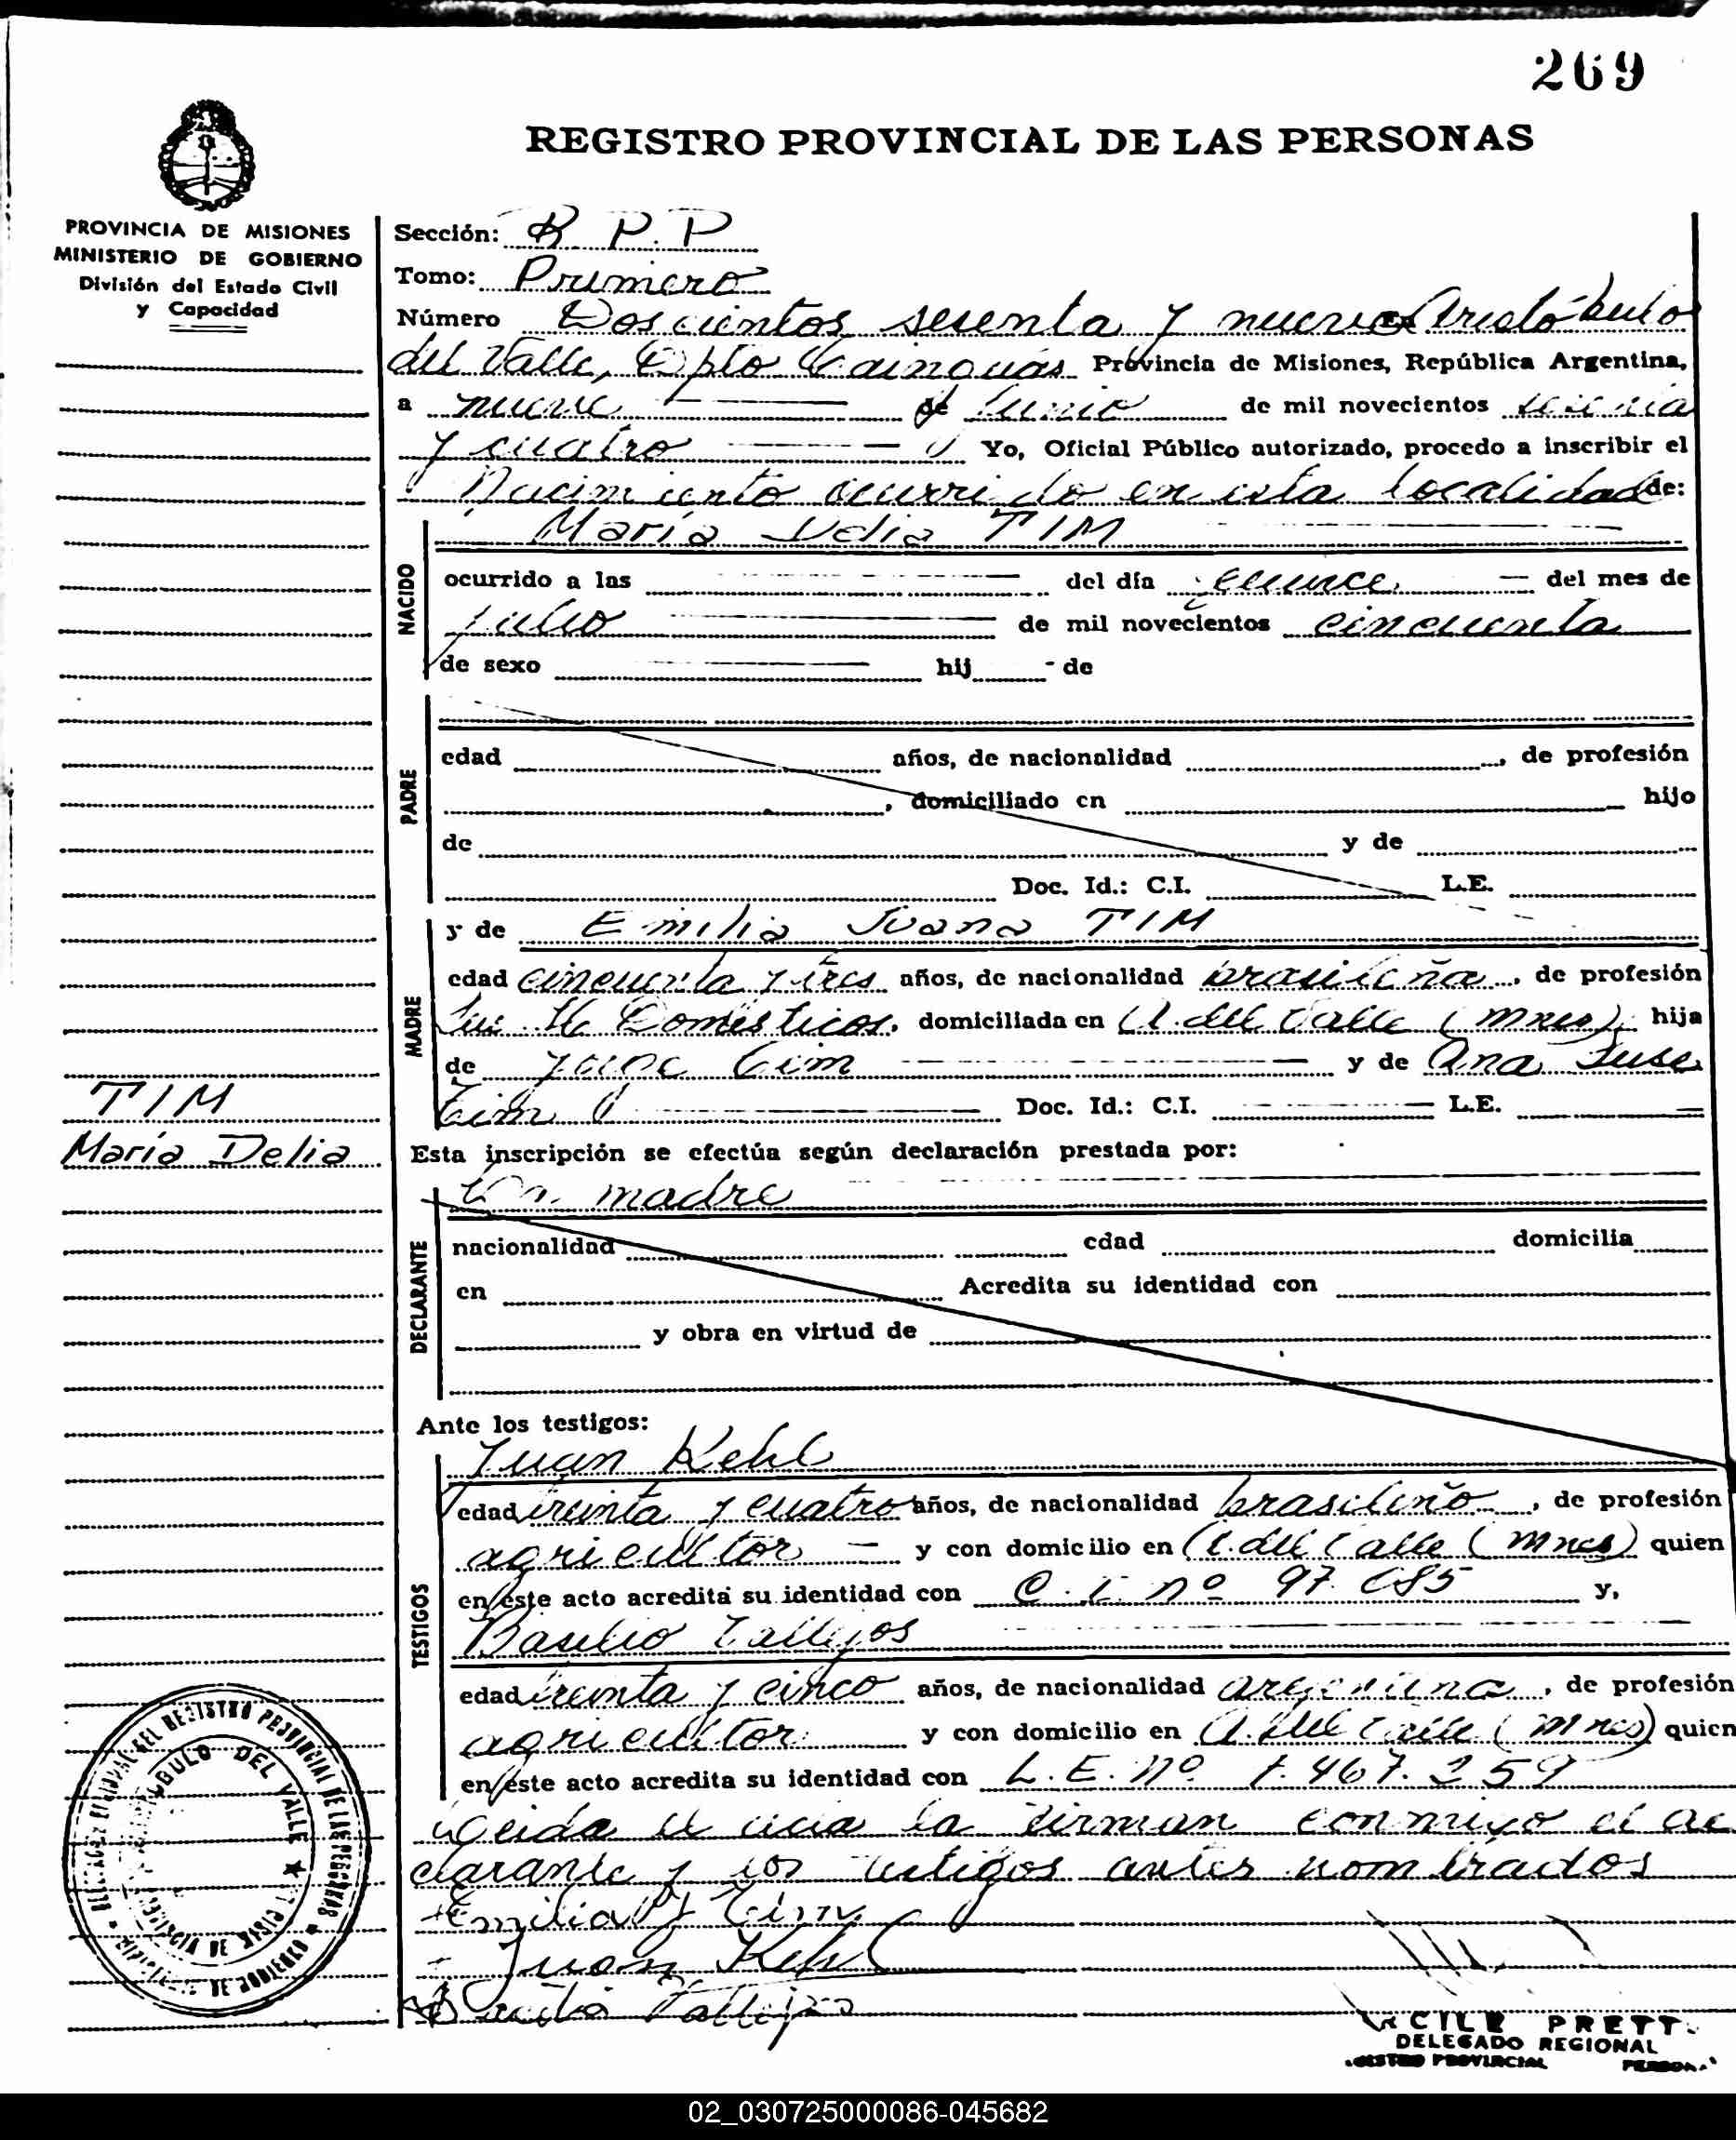 269
REGISTRO PROVINCIAL DE LAS PERSONAS
PROVINCIA DE MISIONES
MINISTERIO DE GOBIERNO
División del Estado Civil
y Capacidad
Sección: R P.P
Tomo: Primero
Número Doscientos sesenta y nueve En Aristóbulo
del Valle, Dpto Cainguás Provincia de Misiones, República Argentina,
a nueve de Junio de mil novecientos setenta
y cuatro Yo, Oficial Público autorizado, procedo a inscribir el
Nacimiento ocurrido en esta localidad de:
NACIDO
María Delia TIM
ocurrido a las del día quince del mes de
julio de mil novecientos cincuenta
de sexo hij de
PADRE
edad años, de nacionalidad , de profesión
, domiciliado en hijo
de y de
Doc. Id.: C.I. L.E.
MADRE
y de Emilia Juana TIM
edad cincuenta y tres años, de nacionalidad brasileña, de profesión
Domésticos, domiciliada en A. del Valle (Mnes), hija
de Tim y de Ana
Tim Doc. Id.: C.I. L.E.
TIM
María Delia
Esta inscripción se efectúa según declaración prestada por:
DECLARANTE
La madre
nacionalidad edad domicilia
en Acredita su identidad con
y obra en virtud de
Ante los testigos:
TESTIGOS
Juan Kehl
edad treinta y cuatro años, de nacionalidad brasileño, de profesión
agricultor y con domicilio en A. del Valle (Mnes) quien
en este acto acredita su identidad con C.I. Nº 97.085 y,
Basilio Vallejos
edad treinta y cinco años, de nacionalidad argentina, de profesión
agricultor y con domicilio en A. del Valle (Mnes) quien
en este acto acredita su identidad con L.E. Nº 7.467.259
Leida el acta la firman conmigo el de
clarante y los testigos antes nombrados
Emilia J Tim
Juan Kehl
Basilio Vallejos
DEL REGISTRO PROVINCIAL DE LAS PERSONAS
DEL VALLE
DE GOBIERNO
PRETT
DELEGADO REGIONAL
PROVINCIAL
02_030725000086-045682